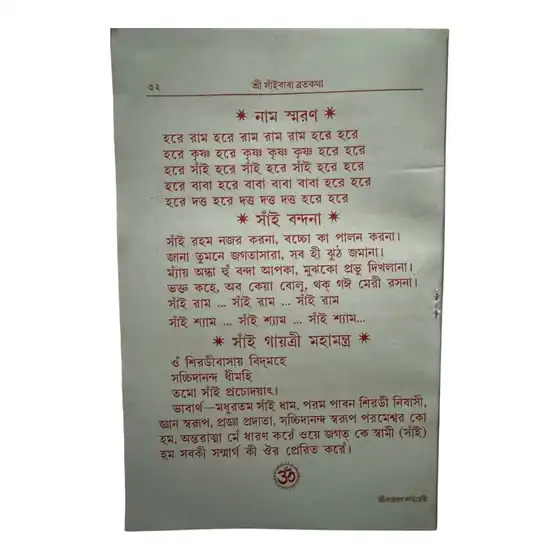 ৩২
শ্রী সাঁইবাবা ব্রতকথা
নাম স্মরণ
হরে রাম হরে রাম রাম রাম হরে হরে
হরে কৃষ্ণ হরে কৃষ্ণ কৃষ্ণ কৃষ্ণ হরে হরে
হরে সাঁই হরে সাঁই হরে সাঁই হরে হরে
হরে বাবা হরে বাবা বাবা বাবা হরে হরে
হরে দত্ত হরে দত্ত দত্ত দত্ত হরে হরে
সাঁই বন্দনা
সাঁই রহম নজর করনা, বচ্চো কা পালন করনা।
জানা তুমনে জগতাসারা, সব হী ঝুঠ জমানা।
ম্যায় অন্ধা হুঁ বন্দা আপকা, মুঝকো প্রভু দিখলানা।
ভক্ত কহে, অব কেয়া বোলু, থক্ গঈ মেরী রসনা।
সাঁই রাম ... সাঁই রাম ... সাঁই রাম
সাঁই শ্যাম ... সাঁই শ্যাম ... সাঁই শ্যাম...
সাঁই গায়ত্রী মহামন্ত্র
ওঁ শিরডীবাসায় বিদ্মহে
সচ্চিদানন্দ ধীমহি
তমো সাঁই প্রচোদয়াৎ।
ভাবার্থ—মধুরতম সাঁই ধাম, পরম পাবন শিরডী নিবাসী,
জ্ঞান স্বরূপ, প্রজ্ঞা প্রদাতা, সচ্চিদানন্দ স্বরূপ পরমেশ্বর কো
হম, অন্তরাত্মা মেঁ ধারণ করেঁ ওয়ে জগত্ কে স্বামী (সাঁই)
হম সবকী সন্মার্গ কী ঔর প্রেরিত করেঁ।
ॐ